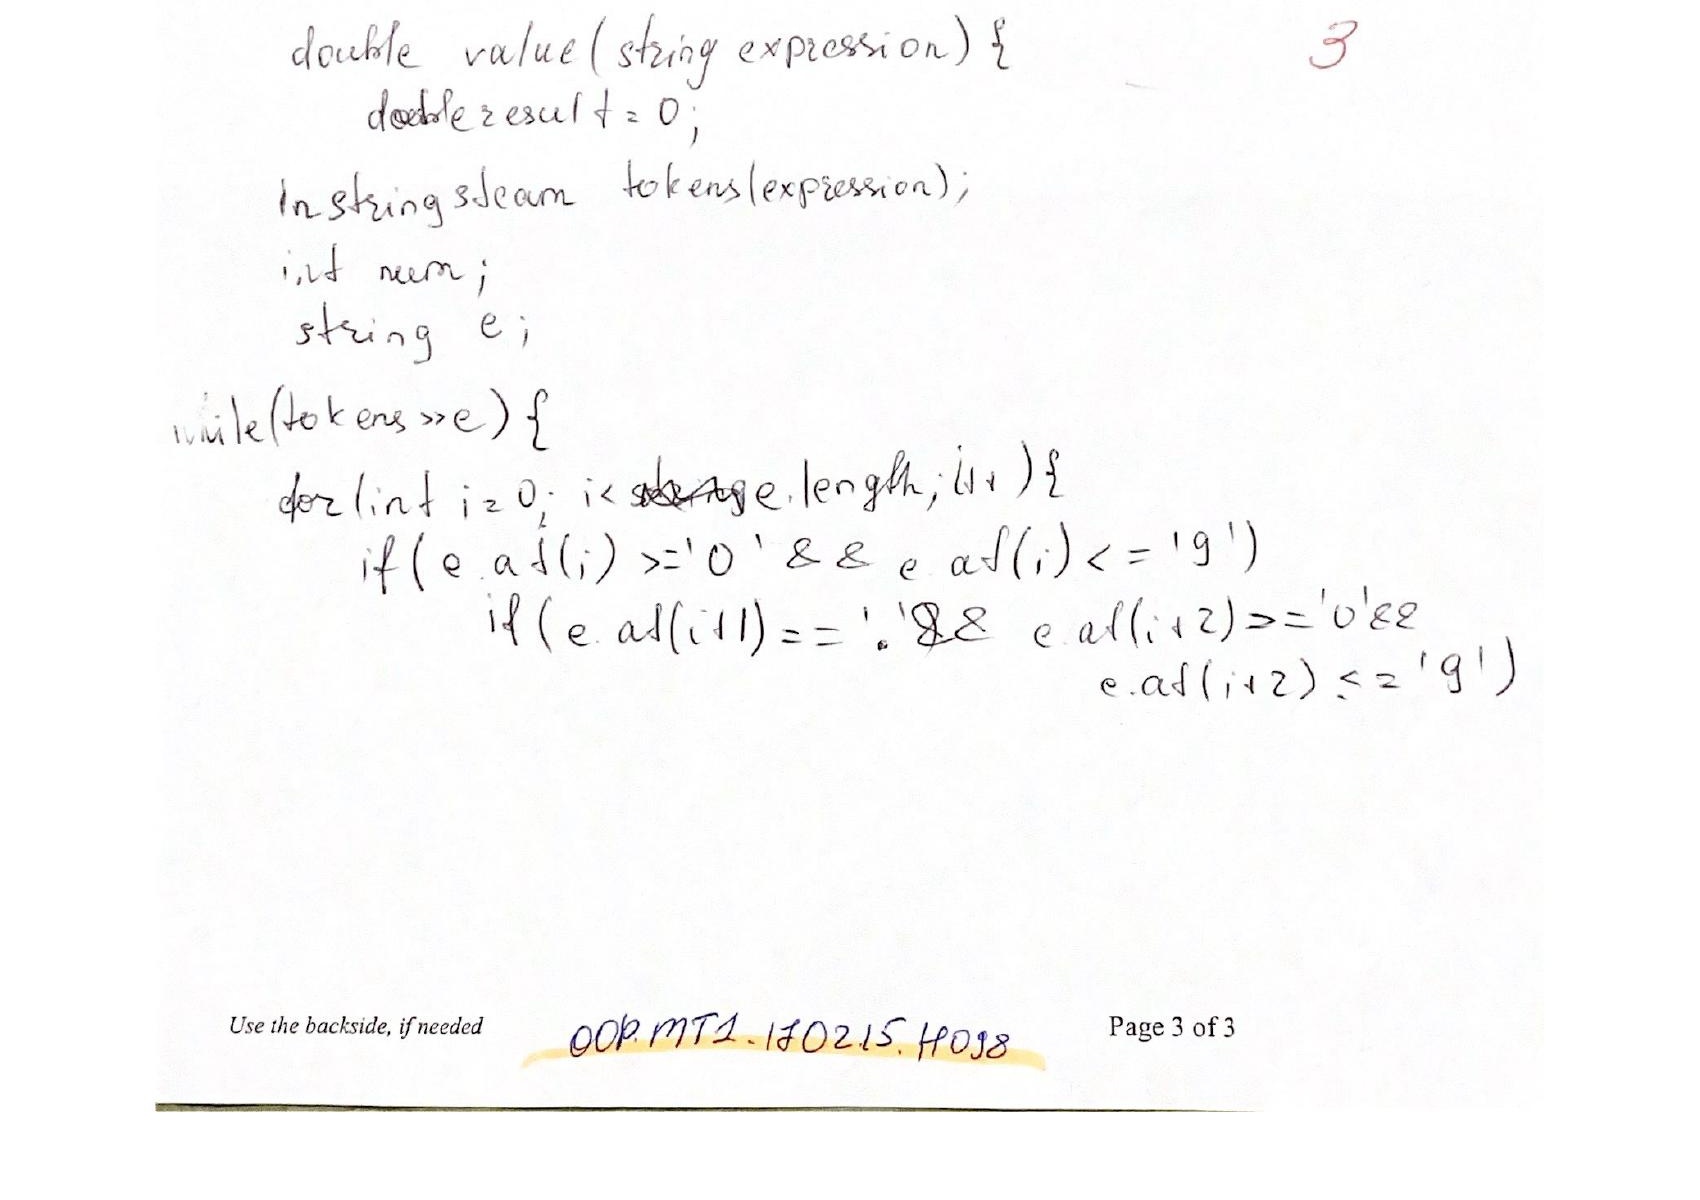 double value(string expression) {
3
double result = 0;
Instringsteam tokens(expression);
int num;
string e;
while(tokens >> e) {
for(int i=0; i< e.length; i++) {
if(e.at(i) >= '0' && e.at(i) <= '9')
if(e.at(i+1) == '.' && e.at(i+2) >= '0' &&
e.at(i+2) <= '9')
Use the backside, if needed
OOP.MT1.170215.H098
Page 3 of 3